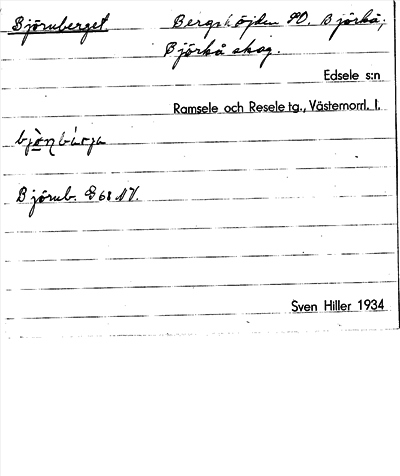 Björnberget Bergshöjden SO. Björkå,
Björkå skog.
Edsele s:n
Ramsele och Resele tg., Västernorrl. l.
Björnb. G 68 NV.
Sven Hiller 1934